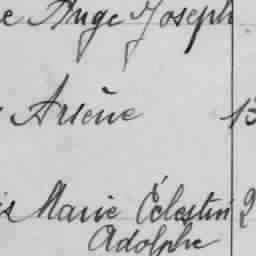 e Ange Joseph
Arsène 13
is Marie Célestin 2
Adolphe